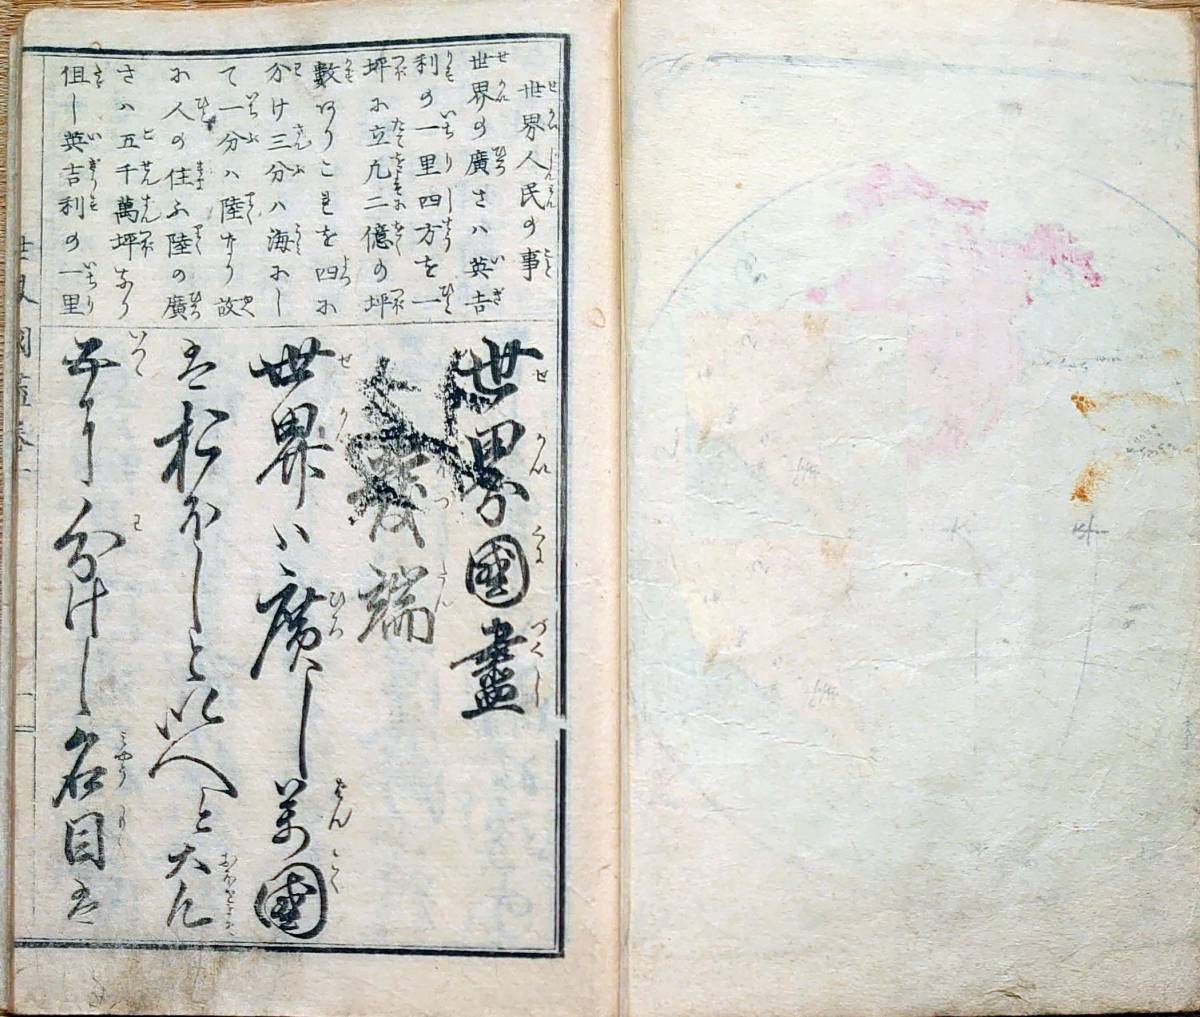 世界人民の事
世界の廣さハ英吉
利の一里四方を一
坪に立凡二億の坪
數ありこれを四に
分け三分ハ海にし
て一分ハ陸なり故
に人の住ふ陸の廣
さハ五千萬坪なり
但し英吉利の一里
世界國盡
發端
世界ハ廣し萬國
はおほしといへと大凡
五に分けし名目は